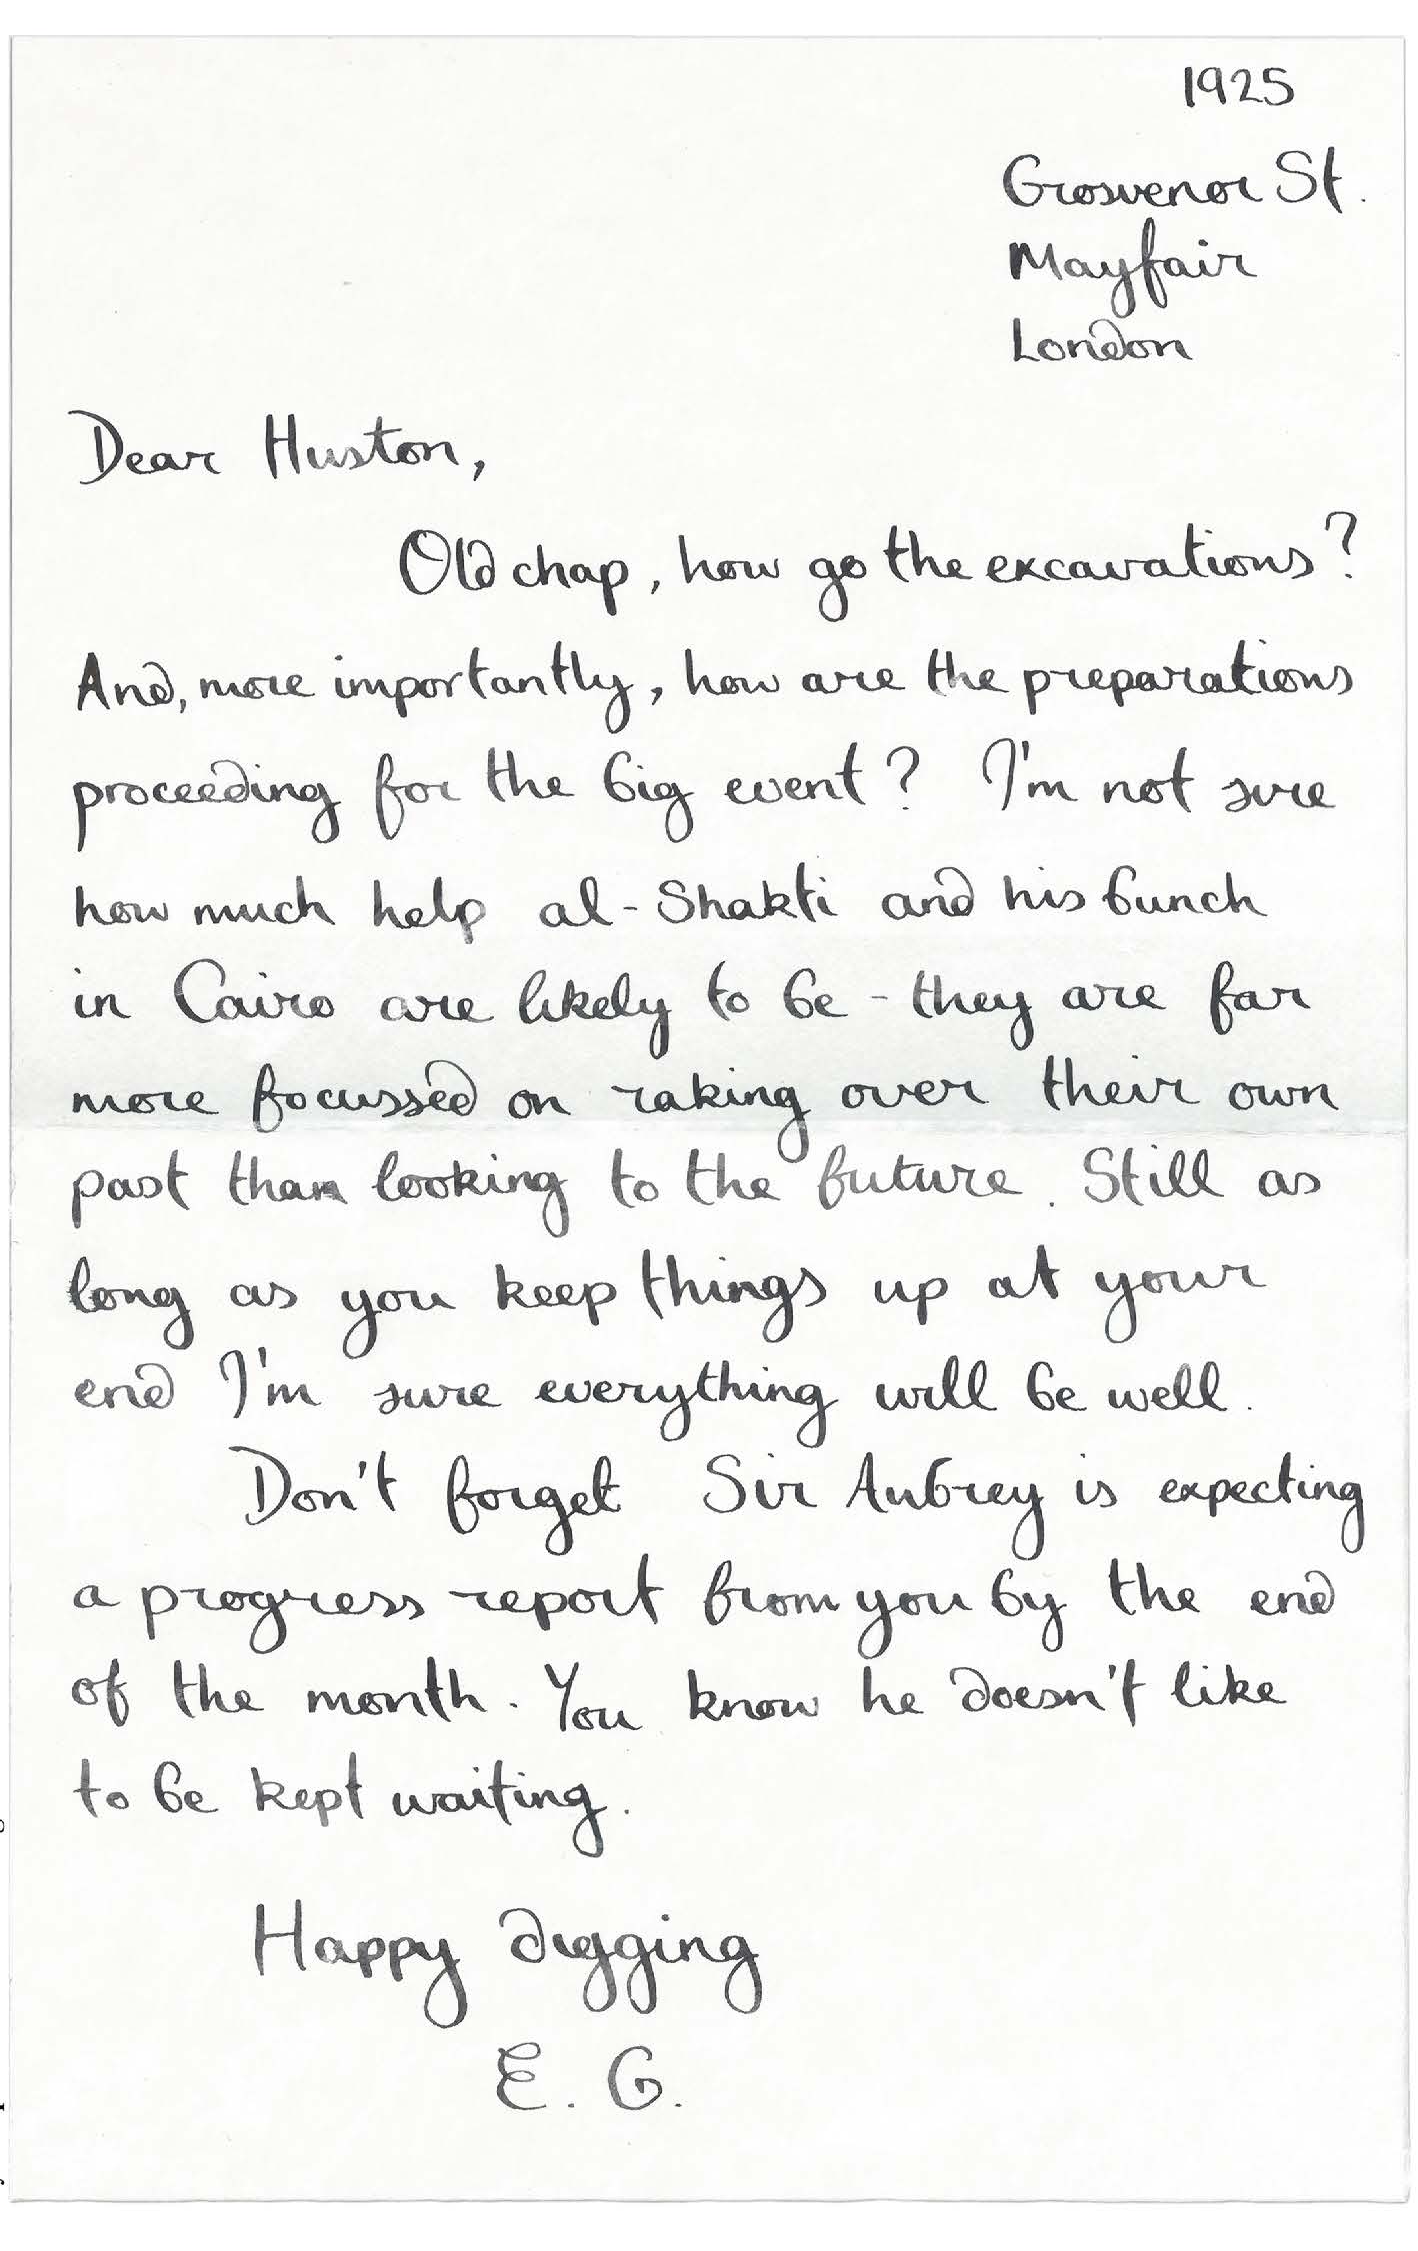 1925
Grosvenor St.
Mayfair
London
Dear Huston,
Old chap, how go the excavations?
And, more importantly, how are the preparations
proceeding for the big event? I'm not sure
how much help al-Shakti and his bunch
in Cairo are likely to be - they are far
more focussed on raking over their own
past than looking to the future. Still as
long as you keep things up at your
end I'm sure everything will be well.
Don't forget Sir Aubrey is expecting
a progress report from you by the end
of the month. You know he doesn't like
to be kept waiting.
Happy digging
E. G.